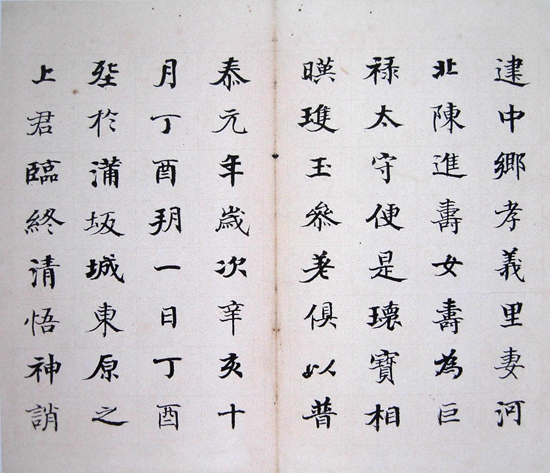 建中鄉孝義里妻河
北陳進壽女壽為巨
禄太守便是瓌寶相
暎瓊玉參差俱以普
泰元年歲次辛亥十
月丁酉朔一日丁酉
塟於蒲坂城東原之
上君臨終清悟神誚